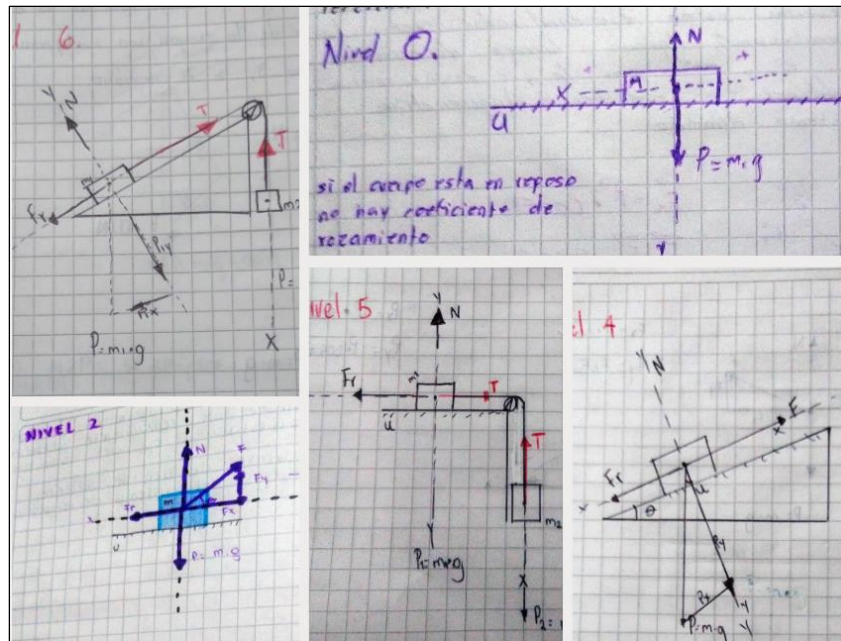 6.
Y
N
T
T
m2
Fr
P1y
P1x
P=m1·g
P=
X
Nivel 0.
N
X
M
U
P=m.g
si el cuerpo esta en reposo
no hay coeficiente de
rozamiento
Y
NIVEL 2
N
F
Fy
Fx
Fr
m
X
U
P=m.g
ivel 5
Y
N
Fr
m1
T
U
T
m2
Y
X
P2=
el 4
Y
N
F
X
Fr
U
X
θ
Py
Y
P=m.g